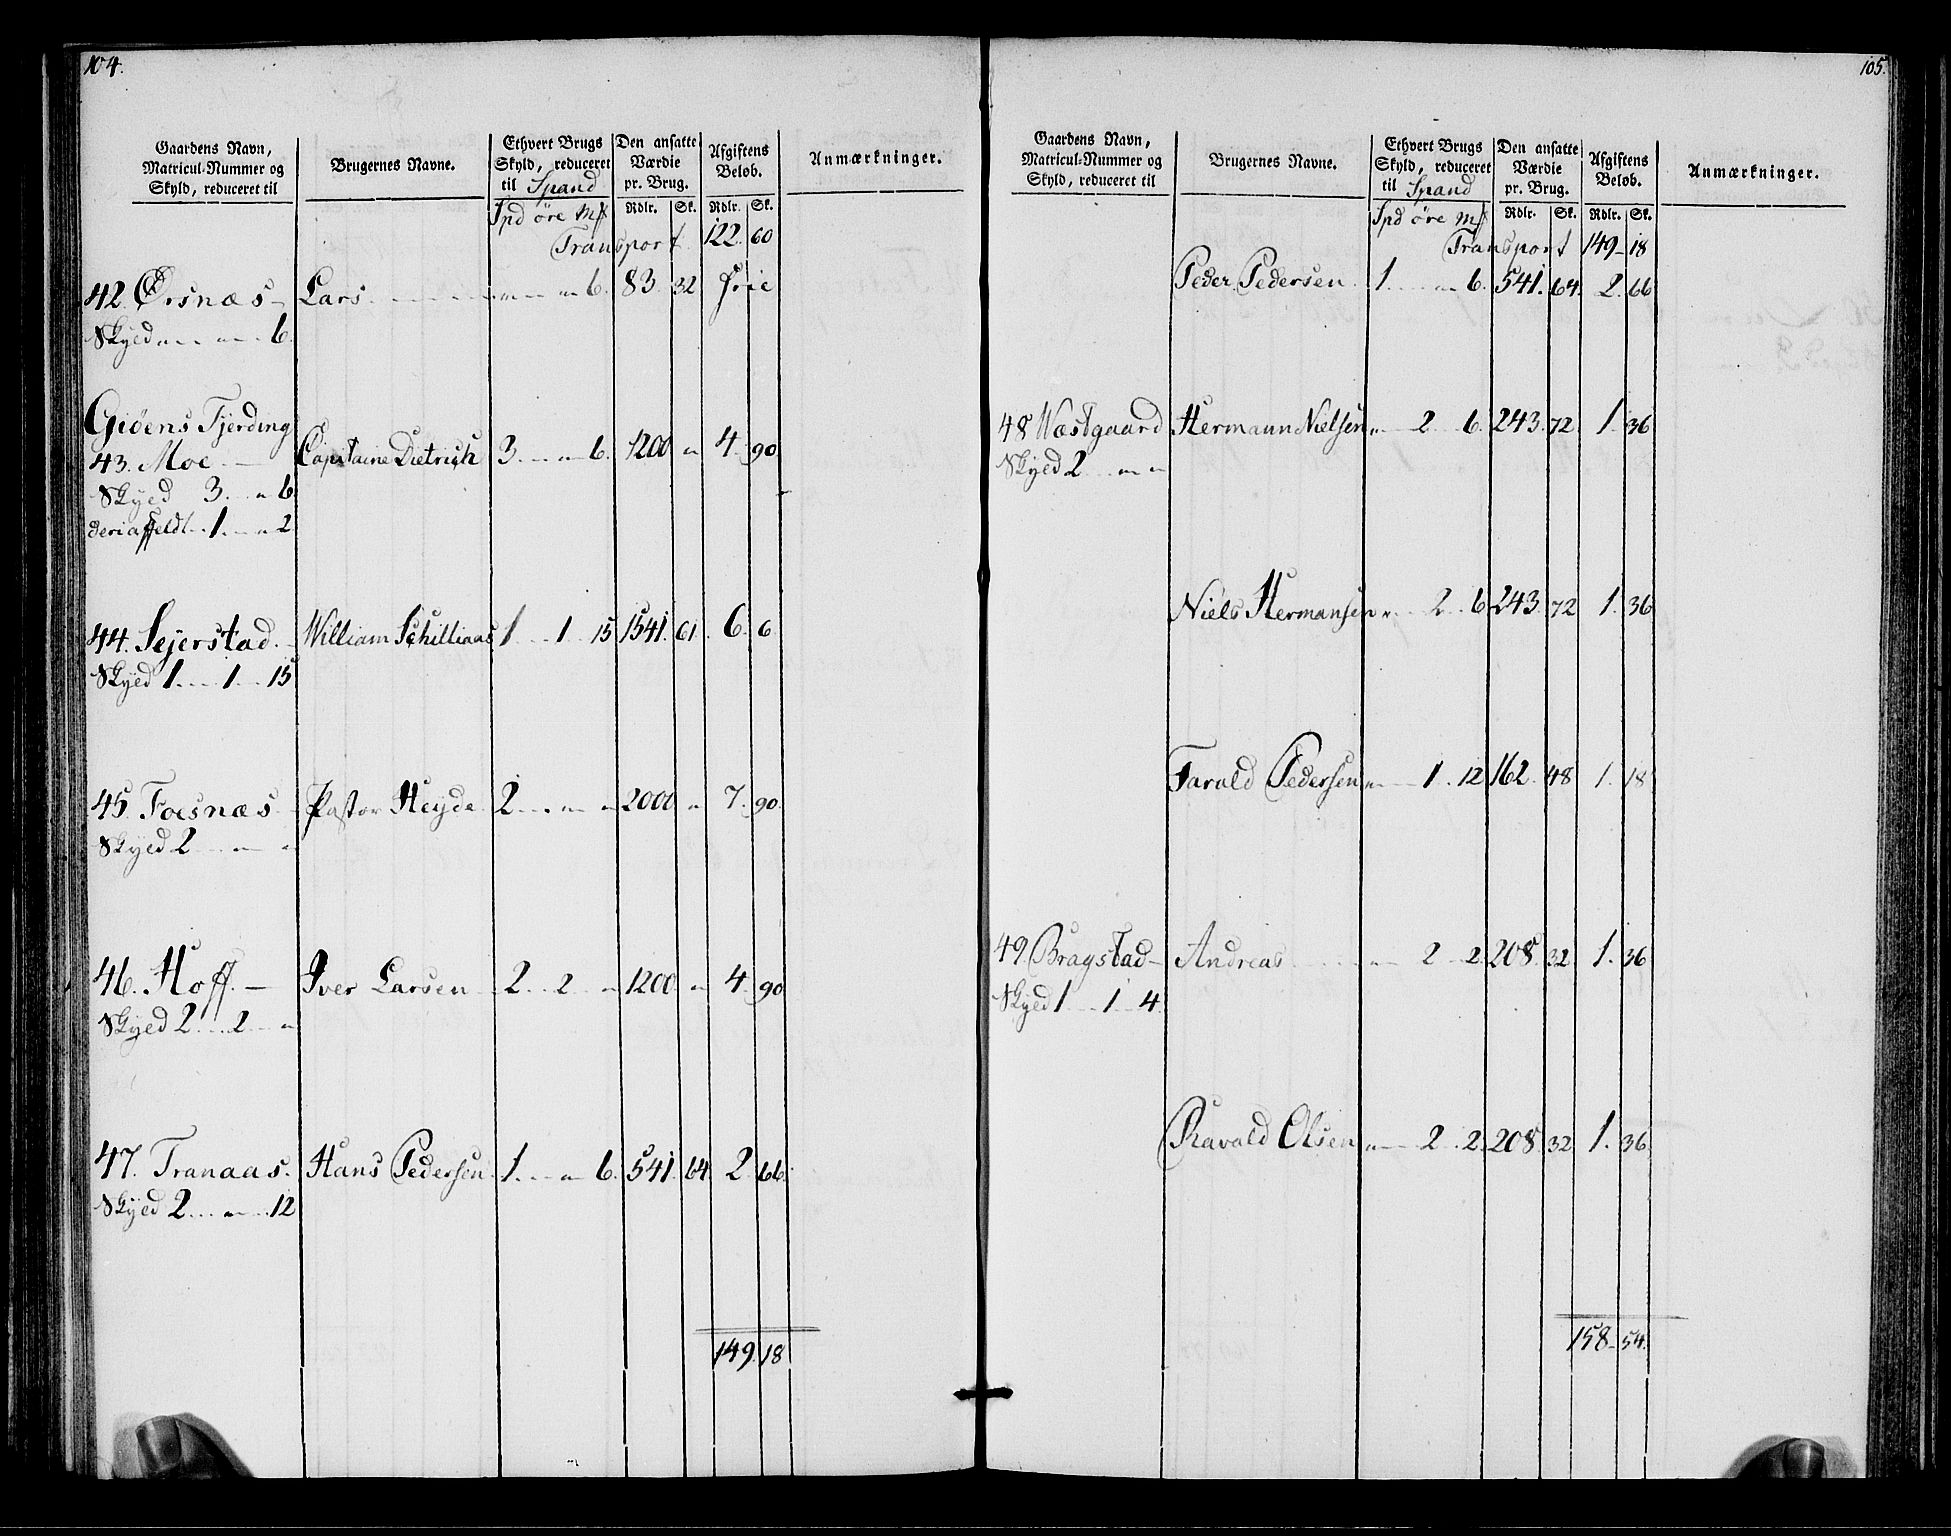 104.
Gaardens Navn, Matricul-Nummer og Skyld, reduceret til
Brugernes Navne.
Ethvert Brugs Skyld, reduceret til Spand
Den ansatte Værdie pr. Brug.
Afgiftens Beløb.
Anmærkninger.
Spd øre Mk Rdlr. Sk. Rdlr. Sk.
Transport 122. 60
42.Ørsnæs – Lars. . . . . . „ — „ 6. 83. 32 Frie
Skyed „ . . „ . . 6.
Giøens Fjerding
43. Moe. — Capitaine Dietrich 3. . . „ 6. 1200 „ 4. 90
Skyed 3. . „ 6
deriaf Feldt . . 1. . „ 2
44. Sejerstad. – William Schilliaas 1 . . 1 . 15 1541. 61. 6. 6
Skyed 1. . . 1. . 15
45. Foesnæs – Pastor Heyde 2. . . „ „ 2000 „ 7. 90.
Skyed 2 . . „ „
46. Hoff. – Iver Larsen 2. . 2 . . „ 1200 „ 4. 90
Skyed 2. . . 2. . „
47. Tranaas. Hans Pedersen 1. . . „ 6. 541. 64. 2. 66.
Skyed 2. . . „ . . 12
149. 18
105.
Gaardens Navn, Matricul-Nummer og Skyld, reduceret til
Brugernes Navne.
Ethvert Brugs Skyld, reduceret til Spand
Den ansatte Værdie pr. Brug.
Afgiftens Beløb.
Anmærkninger.
Spd øre Mk Rdlr. Sk. Rdlr. Sk.
Transport 149 – 18
Peder Pedersen 1. . . „ 6. 541. 64. 2. 66
48 Wæstgaard Hermann Nielsen „ — 2 . 6. 243. 72. 1. 36
Skyed 2 . . „ „
Niels Hermansen „ . . 2 . . 6 243. 72 1. 36
Tarald Pedersen „ — 1 . 12 162. 48 1. 18
49. Bragstad – Andreas . . . „ — 2 . . 2. 208. 32 1. 36
Skyed 1 . . 1 . . 4.
Ravald Olsen „ — 2 . . 2. 208. 32 1. 36
158. 54.